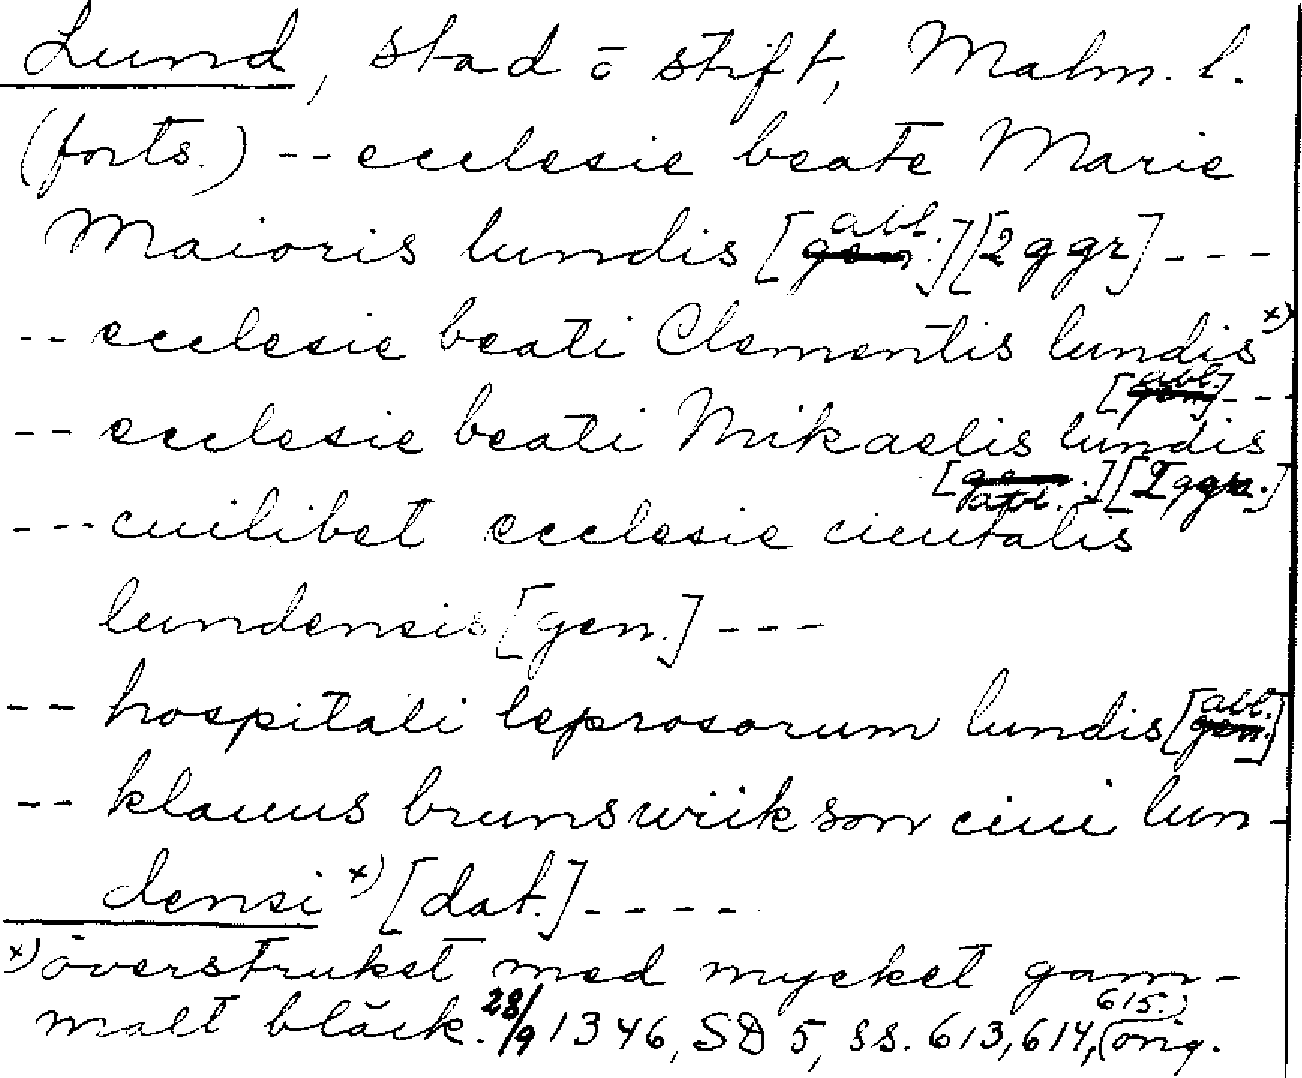 Lund, stad o stift, Malm. l.
(forts.) -- ecclesie beate Marie
Maioris lundis [abl.] [2 ggr] ---
-- ecclesie beati Clementis lundis x)
[abl.] ---
-- ecclesie beati Mikaelis lundis
[abl.] [2 ggr.]
--- cuilibet ecclesie ciuitalis
lundensis [gen.] ---
-- hospitali leprosorum lundis [abl.]
-- klauus brunswiik son ciui lun-
densi x) [dat.] ----
x) överstruket med mycket gam-
malt bläck. 28/9 1346, SD 5, ss. 613, 614, 615. (orig.